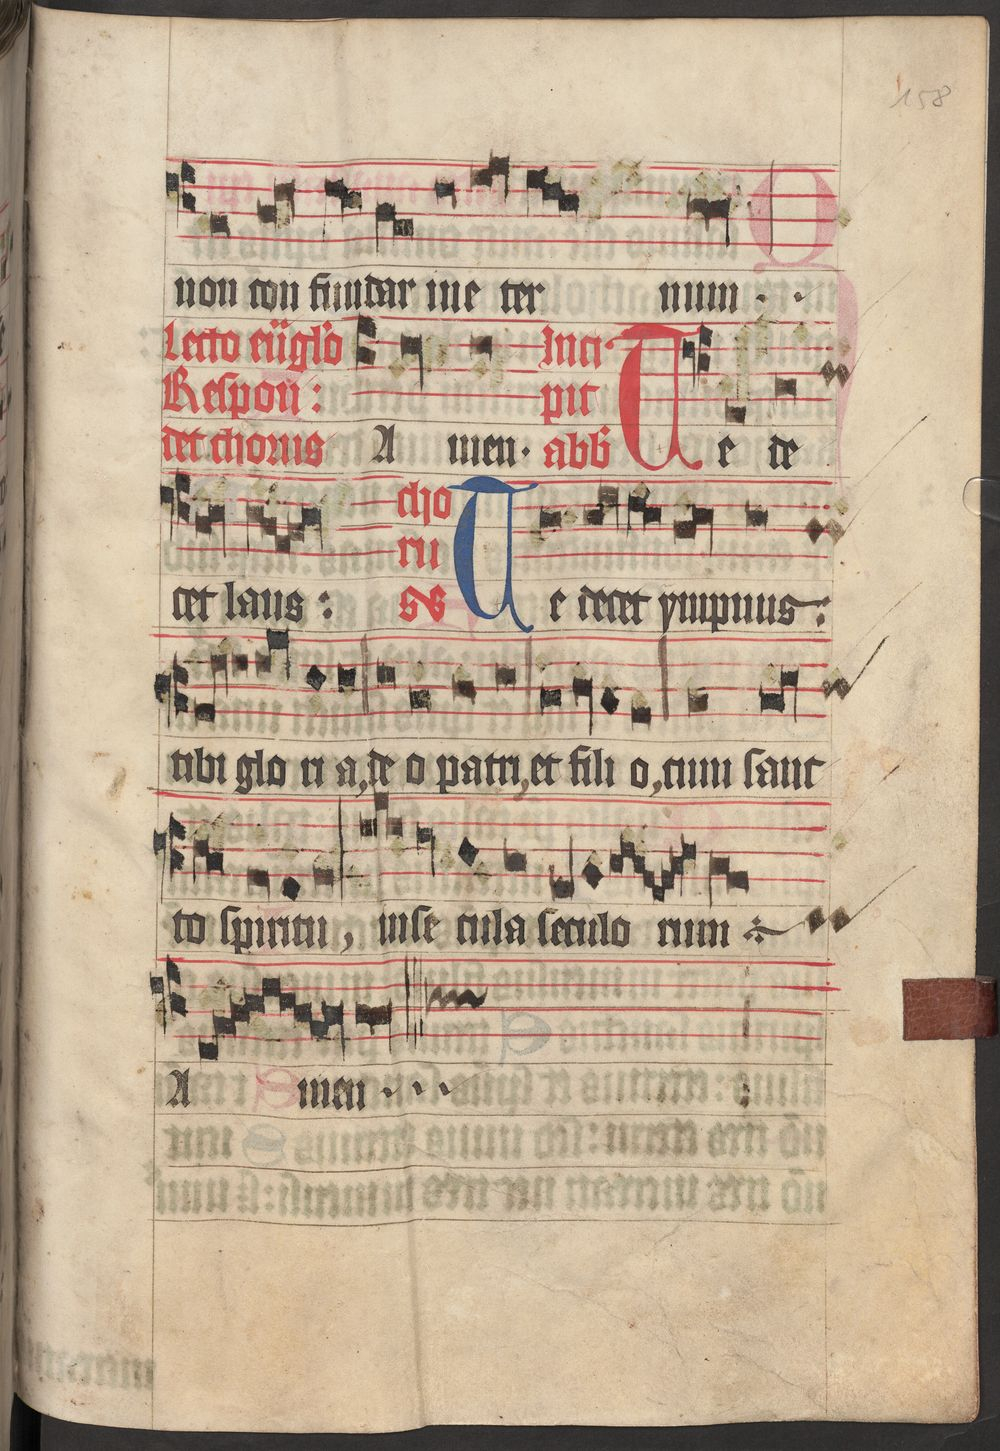 158
non con fundar in e ter num . .
Lecto eu̅glo Inci
Respon : pit
det chorus A men . abb̅ T e de
cho
ru
cet laus : s T e decet ympnus :
tibi glo ri a, de o patri, et fili o, cum sanc
to spiritu , in se cula seculo rum
A men . . .